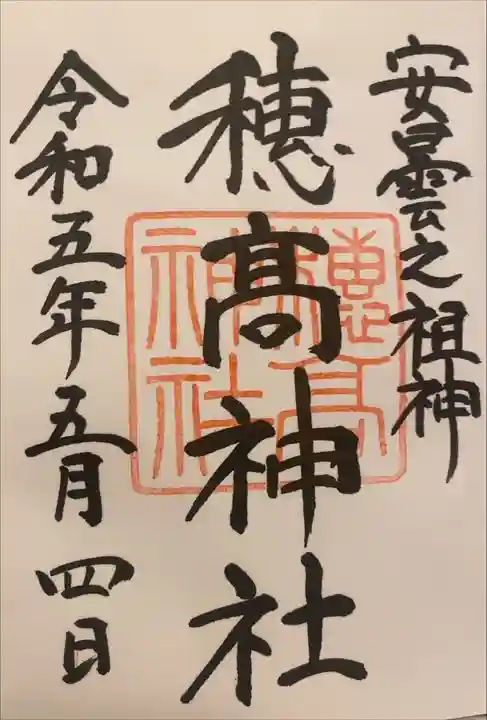 安曇之祖神
穂髙神社
穂高神社
令和五年五月四日